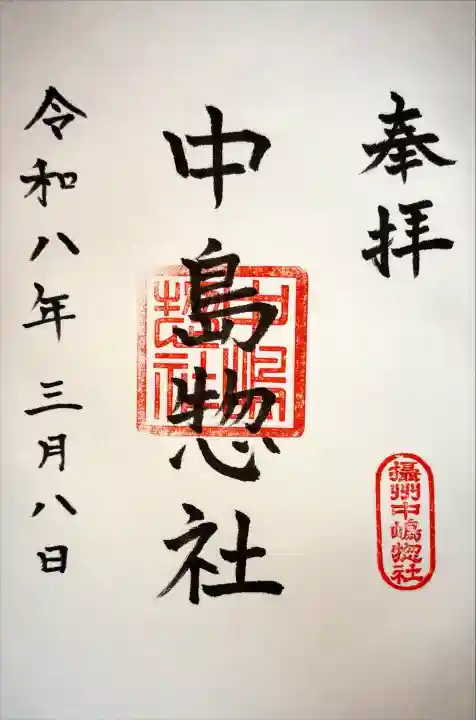 奉拝
攝州中嶋惣社
中島惣社
中嶋惣社
令和八年三月八日